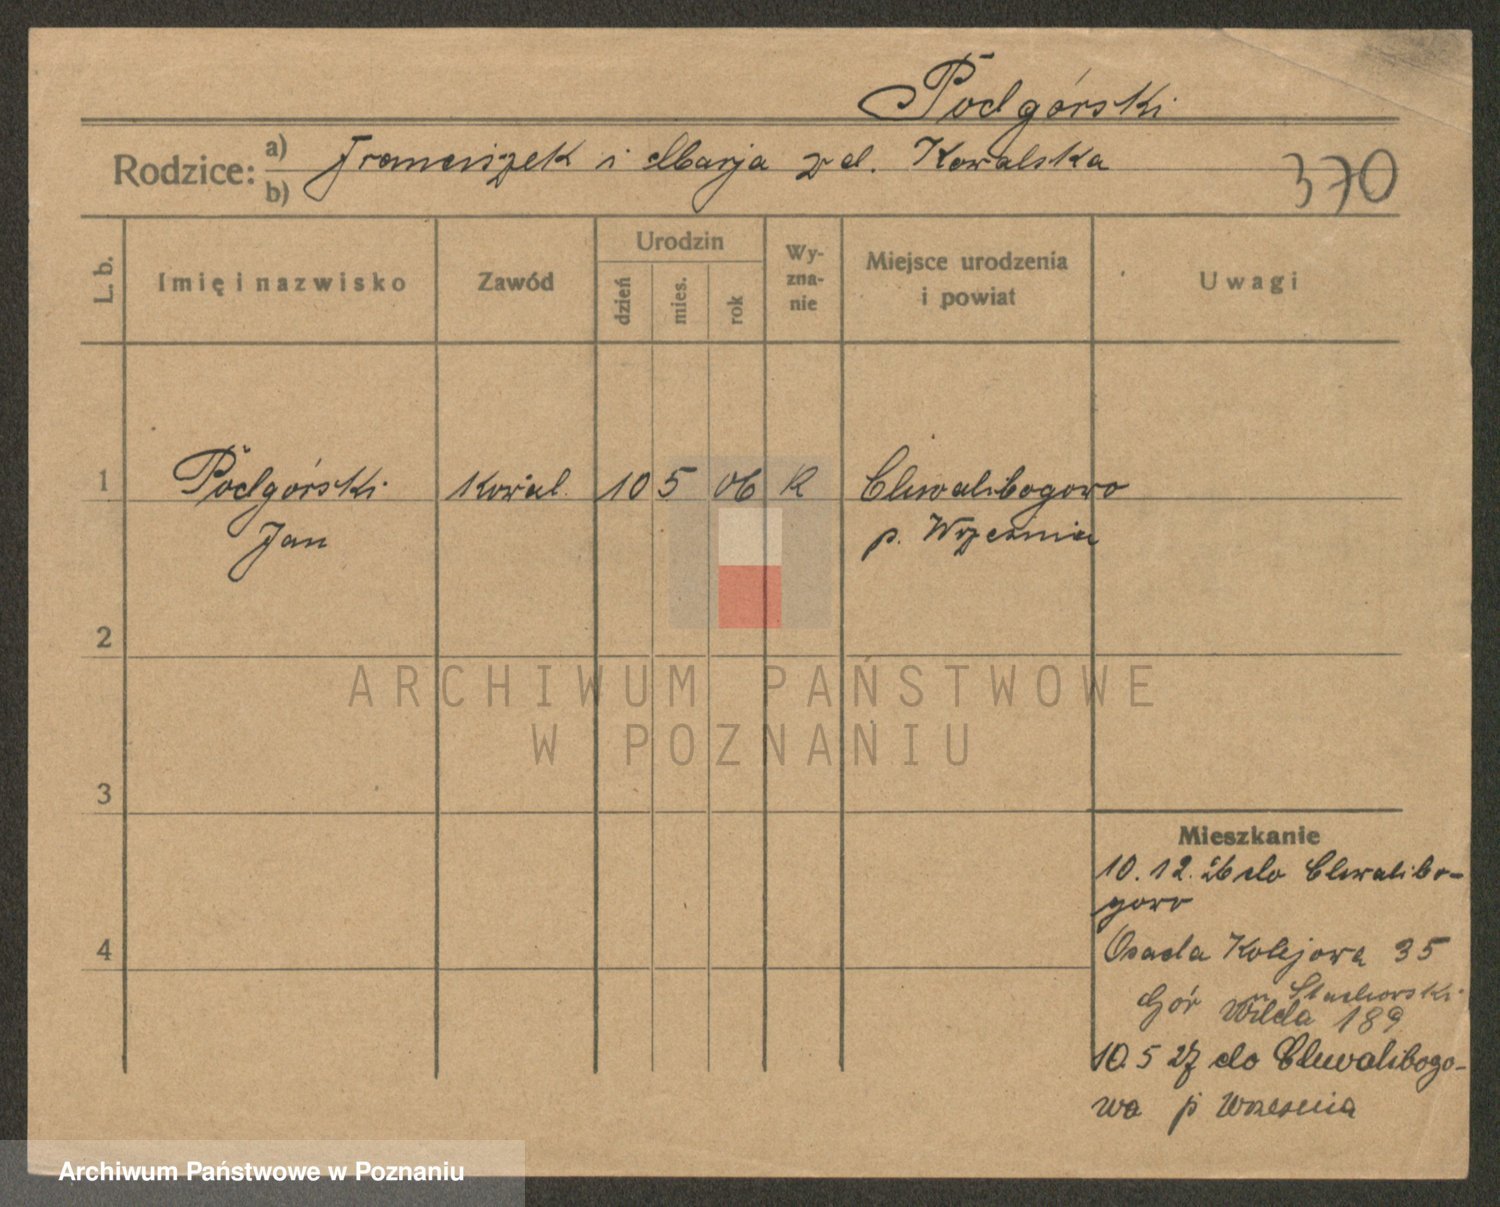 Podgórski
Rodzice: a) Franciszek i Marja z d. Kowalska
b)
370
L. b.
Imię i nazwisko
Zawód
Urodzin
dzień
mies.
rok
Wy-
zna-
nie
Miejsce urodzenia
i powiat
Uwagi
1 Podgórski Kowal. 10 5 06 k Chwalibogowo
Jan p. Września
2
ARCHIWUM PAŃSTWOWE
W POZNANIU
3
Mieszkanie
10.12.26 do Chwalibo-
gowo
4 Osada Kolejowa 35
Gór Wilda 189
10.5 27 do Chwalibogo-
wa p Września
Archiwum Państwowe w Poznaniu